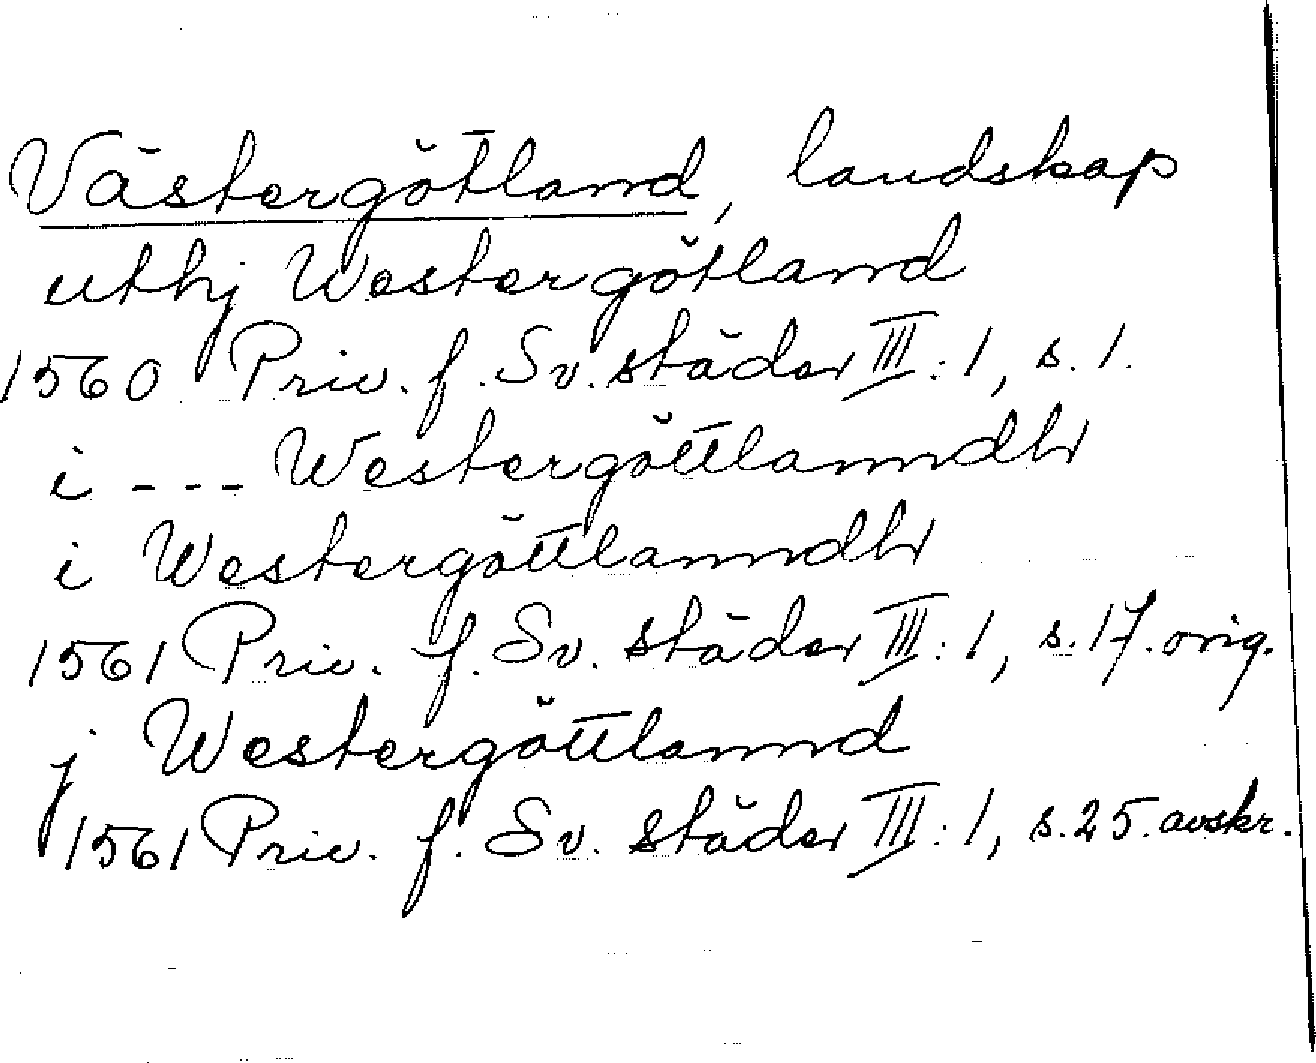 Västergötland, landskap
uthj Westergötland
1560 Priv. f. Sv. städer III:1, s.1.
i --- Westergöttlanndh
i Westergöttlanndh
1561 Priv. f. Sv. städer III:1, s.17. orig.
j Westergöttlannd
1561 Priv. f. Sv. städer III:1, s.25. avskr.